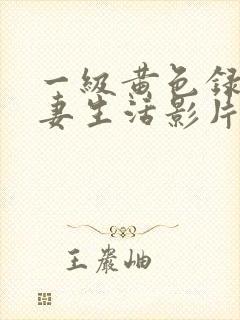 一级黄色録
妻生活影片
王岩岫